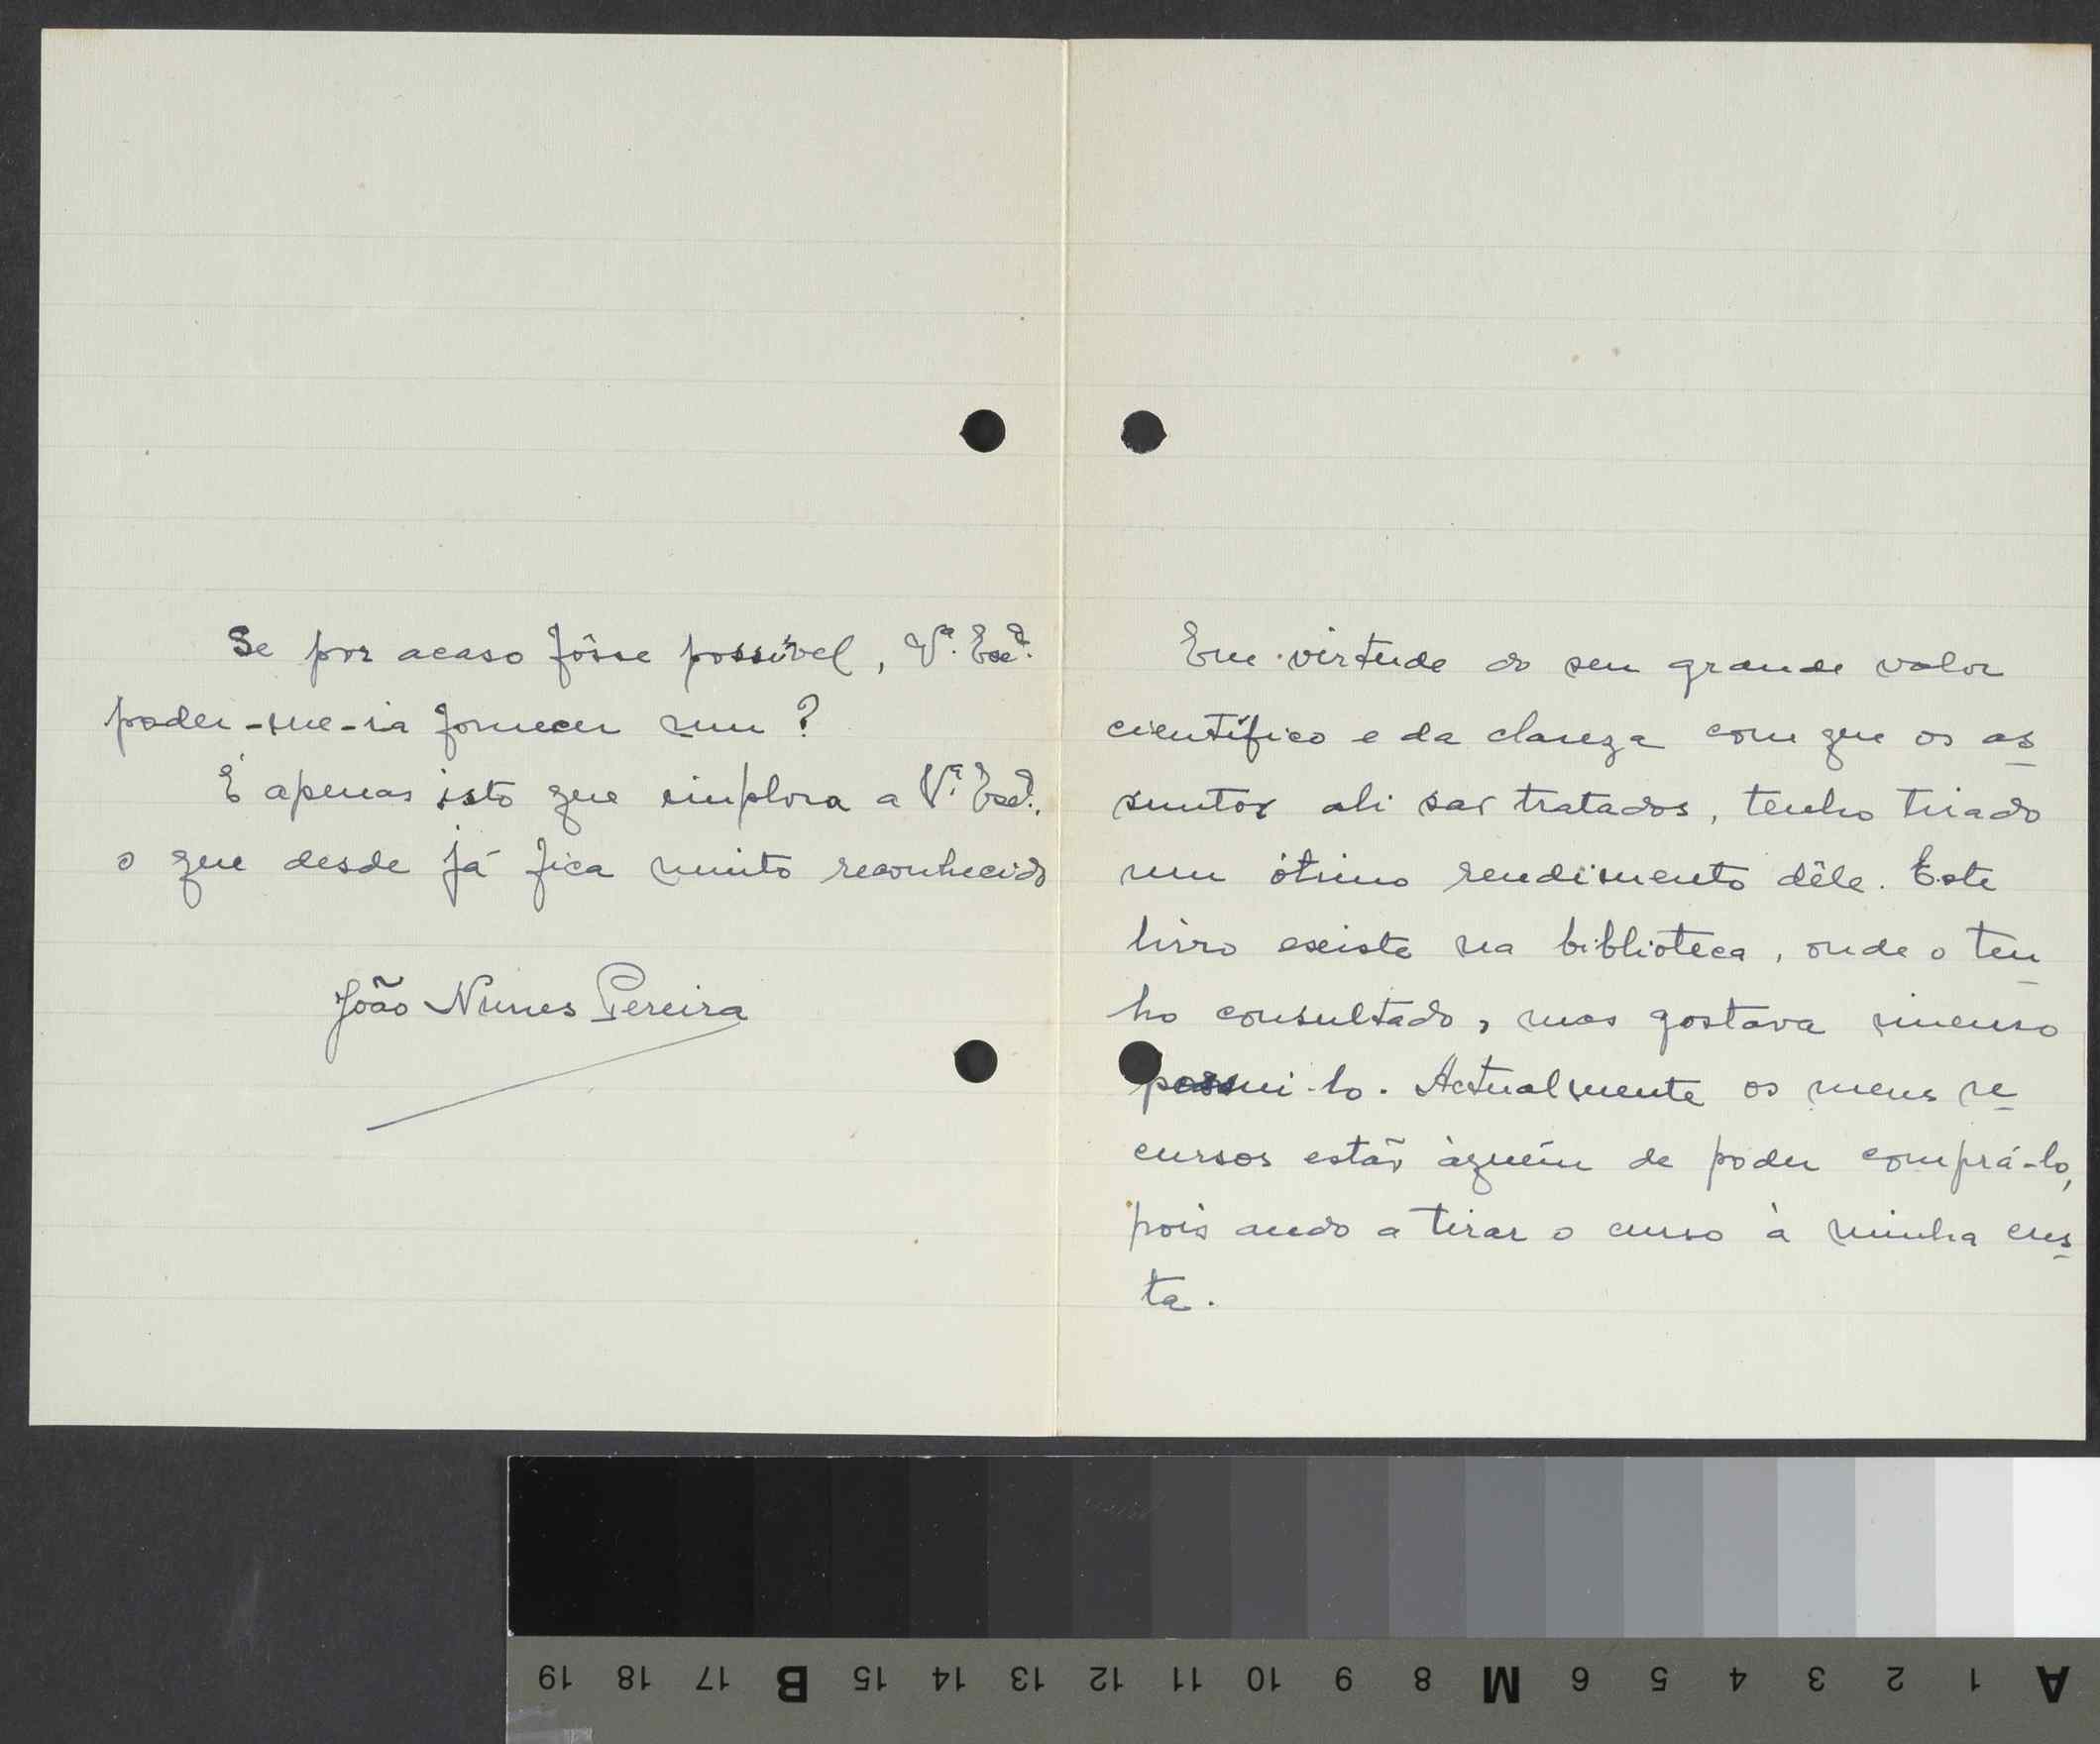 Se por acaso fôsse possível, Vª. Excª.
poder-me-ia fornecer um?
É apenas isto que implora a Vª. Excª.,
o que desde já fica muito reconhecido
João Nunes Pereira
Em virtude do seu grande valor
científico e da clareza com que os as
suntos ali são tratados, tenho tirado
um ótimo rendimento dêle. Este
livro existe na biblioteca, onde o ten
ho consultado, mas gostava imenso
possui-lo. Actualmente os meus re
cursos estão àquém de poder comprá-lo,
pois ando a tirar o curso à minha cus
ta.
19 18 17 B 15 14 13 12 11 10 9 8 M 6 5 4 3 2 1 A